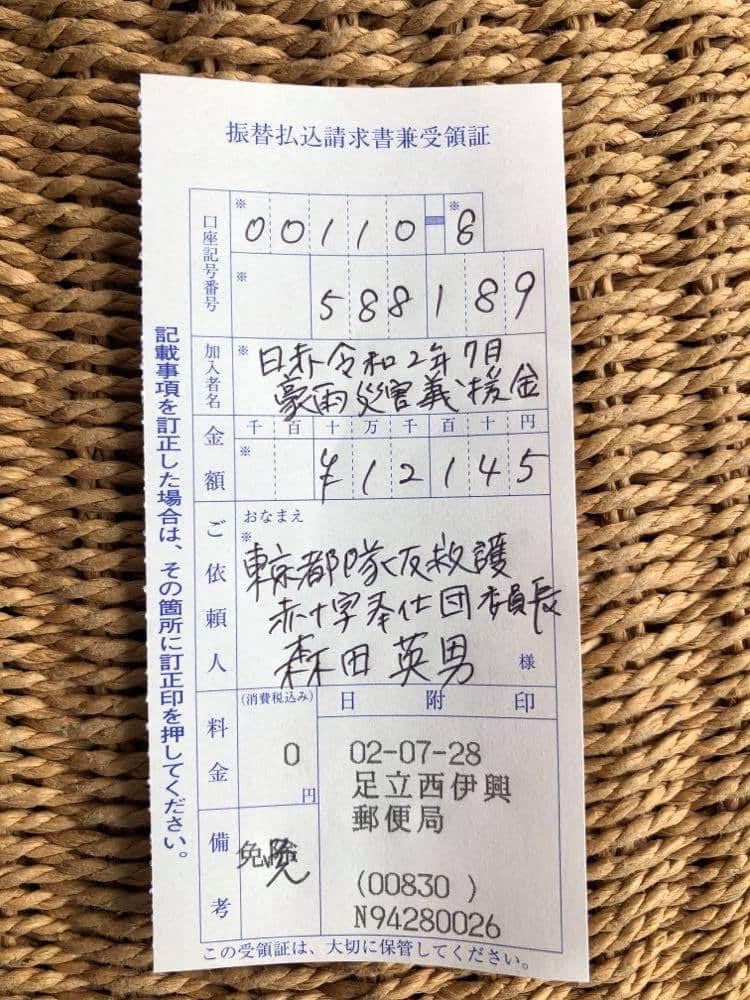 振替払込請求書兼受領証
口座記号番号
※ 00110-※ 8
※ 588189
加入者名
※ 日赤令和2年7月
豪雨災害義援金
金額
千百十万千百十円
※ ¥12145
ご依頼人
おなまえ
※
東京都隊友救護
赤十字奉仕団委員長
森田英男
様
料金
(消費税込み)
0
円
日附印
02-07-28
足立西伊興
郵便局
(00830 )
N94280026
備考
免
この受領証は、大切に保管してください。
記載事項を訂正した場合は、その箇所に訂正印を押してください。